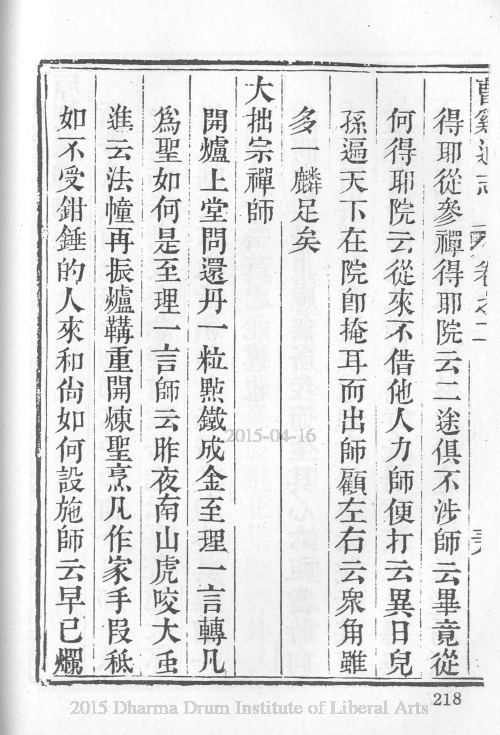 得耶從參禪得耶院云二途俱不涉師云畢竟從
何得耶院云從來不借他人力師便打云異日兒
孫遍天下在院卽掩耳而出師顧左右云衆角雖
多一麟足矣
大拙宗禪師
開爐上堂問還丹一粒㸃鐵成金至理一言轉凡
爲聖如何是至理一言師云昨夜南山虎咬大䖝
進云法幢再振爐鞴重開煉聖烹凡作家手段秪
如不受鉗錘的人來和尙如何設施師云早已爛
2015-04-16
218
2015 Dharma Drum Institute of Liberal Arts